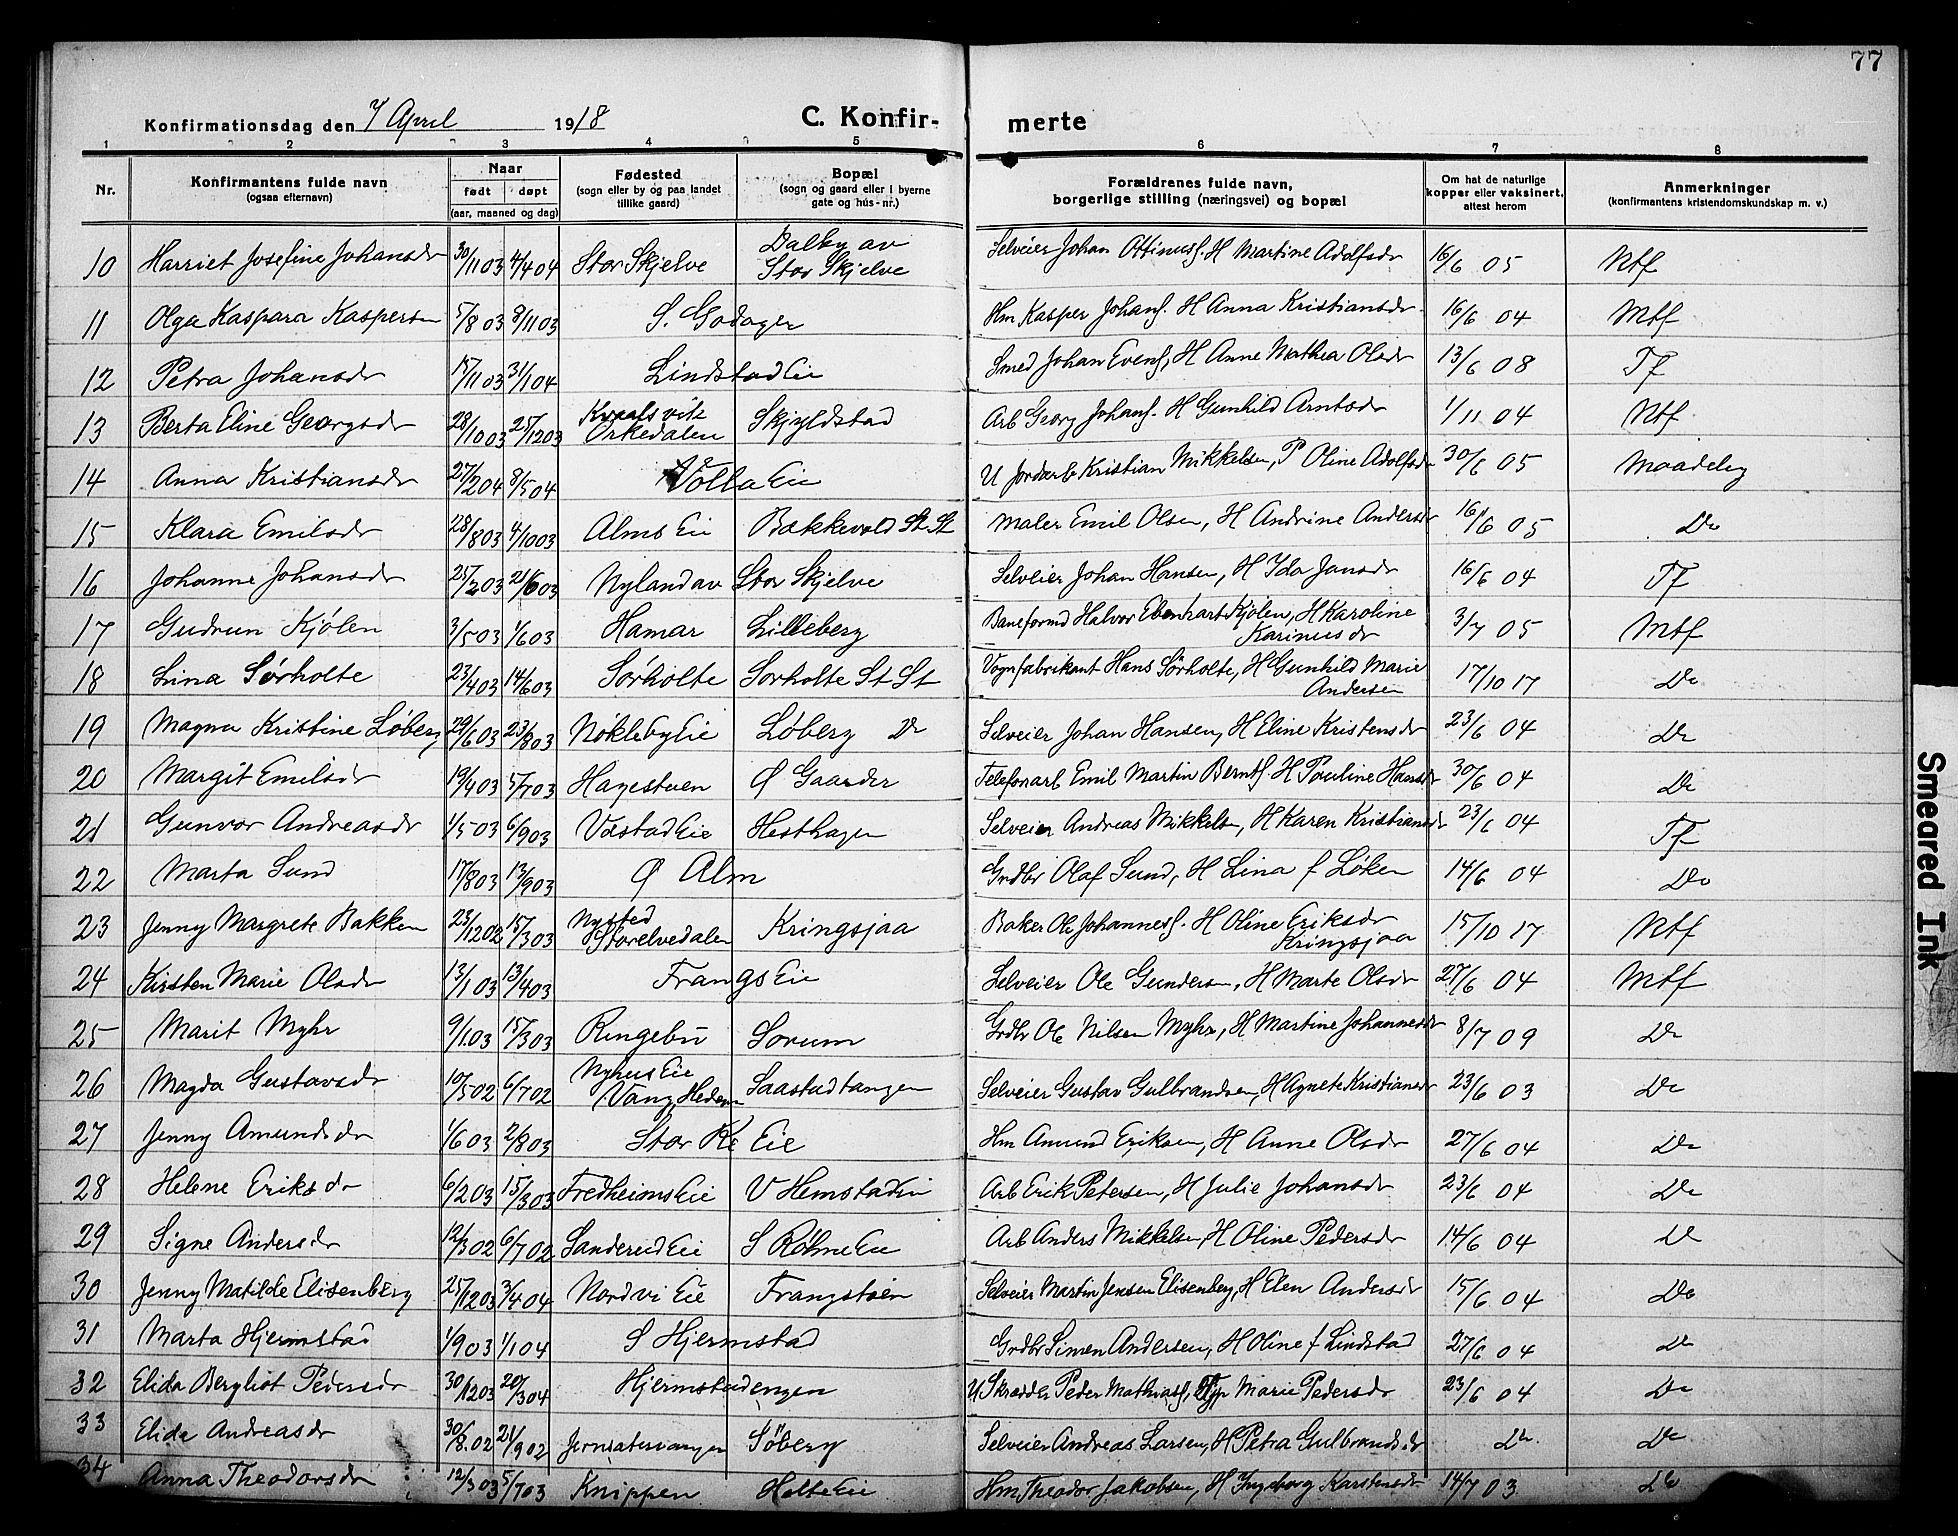 77
Konfirmationsdag den 7 April 1918 C. Konfir- merte
1 2 3 4 5 6 7 8
Nr. Konfirmantens fulde navn (ogsaa efternavn) Naar født døpt (aar, maaned og dag) Fødested (sogn eller by og paa landet tillike gaard) Bopæl (sogn og gaard eller i byerne gate og hus-nr.) Forældrenes fulde navn, borgerlige stilling (næringsvei) og bopæl Om hat de naturlige kopper eller vaksinert, attest herom Anmerkninger (konfirmantens kristendomskundskap m. v.)
10 Harriet Josefine Johansdr 30/11 03 4/4 04 Stor Skjelve Dalby av Stor Skjelve Selveier Johan Ottinusf. H Martine Adolfsdr 16/6 05 Mtf
11 Olga Kaspara Kaspersen 5/8 03 8/11 03 S. Godager Hm Kasper Johansf. H Anna Kristiansdr 16/6 04 Mtf
12 Petra Johansdr 17/11 03 31/1 04 Lindstad Eie Smed Johan Evensf, H Anne Mathea Olsdr 13/6 08 Tf
13 Berta Eline Georgsdr 28/10 03 25/12 03 Kvaalsvik Orkedalen Skjyldstad Arb Georg Johansf. H Gunhild Arntsdr 1/11 04 Ntf
14 Anna Kristiansdr 27/2 04 8/5 04 Volla Eie U Jordarb Kristian Mikkelsen, P Oline Adolfsdr 30/6 05 Maadelig
15 Klara Emilsdr 28/8 03 4/10 03 Alms Eie Bækkevold St. St Maler Emil Olsen, H Andrine Andersdr 16/6 05 Do
16 Johanne Johansdr 25/2 03 21/6 03 Nyland av Stor Skjelve Selveier Johan Hansen, H Ida Jansdr 16/6 04 Tf
17 Gudrun Kjölen 3/5 03 1/6 03 Hamar Lilleberg Baneformd Halvor Ebenhart Kjölen, H Karoline Karinusdr 3/7 05 Mtf
18 Lina Sørholte 23/4 03 14/6 03 Sørholte Sørholte St St Vognfabrikant Hans Sørholte, H Gunhild Marie Andersen 17/10 17 Do
19 Magna Kristine Løberg 29/6 03 23/8 03 Nøkleby Eie Løberg Do Selveier Johan Hansen, H Eline Kristensdr 23/6 04 Do
20 Margit Emilsdr 19/4 03 5/7 03 Hagestuen Ø Gaarder Telefonarb Emil Martin Berntf. H Pouline Hansdr 30/6 04 Do
21 Gunvor Andreasdr 1/5 03 6/9 03 Vostad Eie Hesthagen Selveier Andreas Mikkelsen, H Karen Kristiansdr 23/6 04 Tf
22 Marta Sund 17/8 03 13/9 03 Ø Alm Grdbr Olaf Sund, H Lina f Løken 14/6 04 Do
23 Jenny Margrete Bakken 23/12 02 15/3 03 Nysted Storelvedalen Kringsjaa Baker Ole Johannesf. H Oline Eriksdr Kringsjaa 15/10 17 Ntf
24 Kirsten Marie Olsdr 13/1 03 13/4 03 Frangs Eie Selveier Ole Gundersen, H Marte Olsdr 27/6 04 Mtf
25 Marit Myhr 9/1 03 15/3 03 Ringebu Sorum Grdbr Ole Nilsen Myhr, H Martine Johannesdr 8/7 09 Do
26 Magda Gustavsdr 10/5 02 6/7 02 Nyhus Eie Vang, Hedem Saastadtangen Selveier Gustav Gulbrandsen, H Agnete Kristiansdr 23/6 03 Do
27 Jenny Amundsdr 1/6 03 2/8 03 Stor Ke Eie Hm Amund Eriksen, H Anne Olsdr 27/6 04 Do
28 Helene Eriksdr 6/2 03 15/3 03 Fredheims Eie V Hemstad Eie Arb Erik Petersen, H Julie Johansdr 23/6 04 Do
29 Signe Andersdr 12/3 02 6/7 02 Sandereid Eie S Röhne Eie Arb Anders Mikkelsen, H Oline Pedersdr 14/6 04 Do
30 Jenny Matilde Elisenberg 25/12 03 3/4 04 Nordvi Eie Frangstøen Selveier Martin Jensen Elisenberg, H Elen Andersdr 15/6 04 Do
31 Marta Hjermstad 1/9 03 1/1 04 S Hjermstad Grdbr Simen Andersen, H Oline f Lindstad 27/6 04 Do
32 Elida Bergliot Pedersdr 30/12 03 20/3 04 Hjermstadengen U Skrædder Peder Mathiasf, Marie Pedersdr 23/6 04 Do
33 Elida Andreasdr 30/8 02 21/9 02 Søberg Selveier Andreas Larsen, H Petra Gulbrandsdr Do Do
34 Anna Theodorsdr 12/3 03 5/7 03 Knippen Holte Eie Hm Theodor Jakobsen, H Ingeborg Karstensdr 14/7 03 Do
Smeared Ink